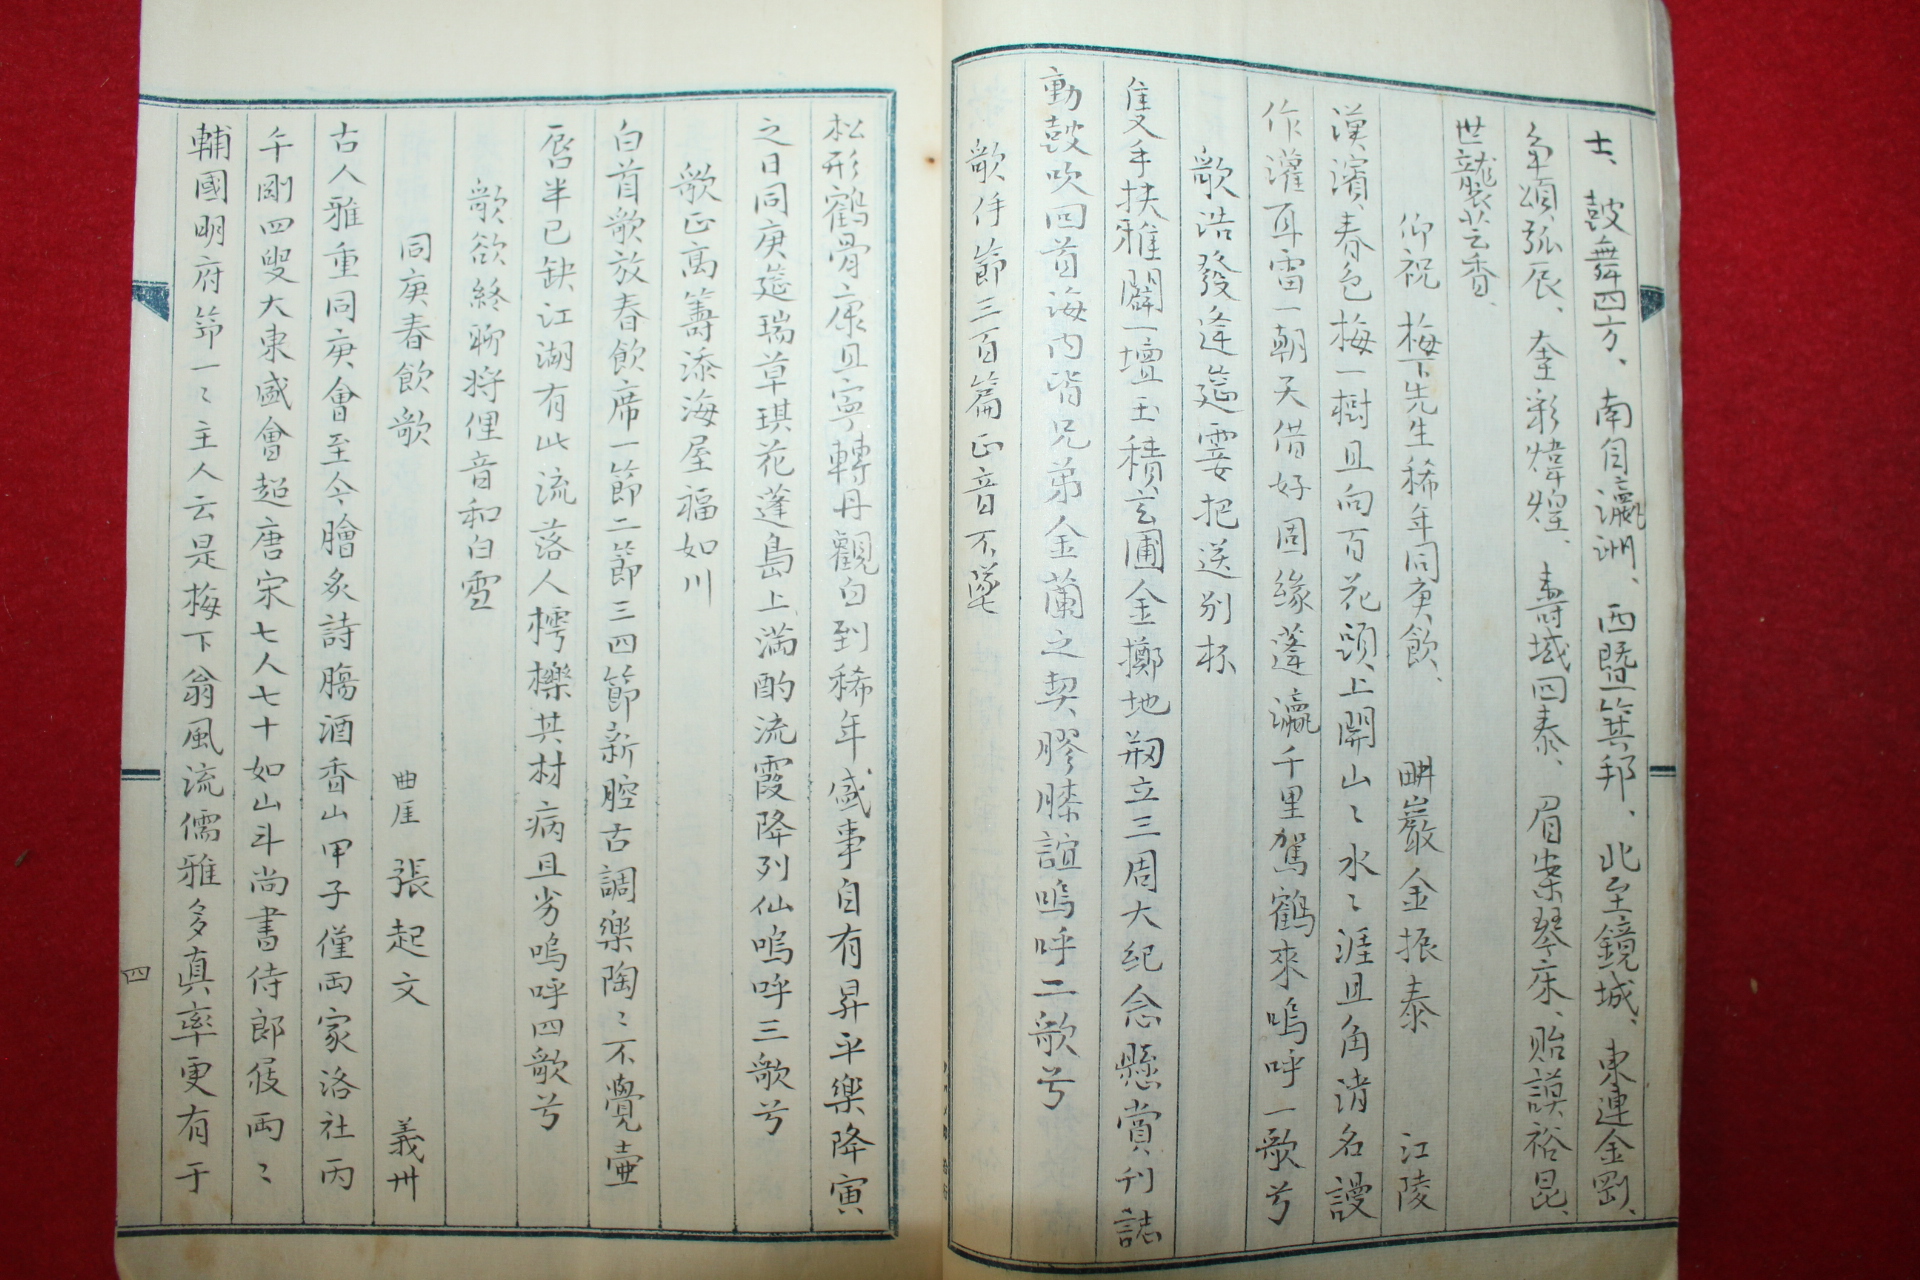 士、鼓舞四方、南自瀛洲、西曁箕邦、北至鏡城、東連金剛、
争頌弧辰、奎彩煒煌、壽域回泰、眉案琴床、貽謨裕昆、
世襲芸香、
仰祝 梅下先生稀年同庚飮、 畊巖 金振泰 江陵
漢濱春色梅一樹且向百花頭上開山〻水〻涯且角渚名謾
作灌耳雷一朝天借好因緣蓬瀛千里駕鶴來嗚呼一歌兮
歌浩發逢莚霎把送別杯
隻手扶雅闢一壇玉積玄圃金擲地刱立三周大紀念懸賞刊誌
動鼓吹四首海內皆兄弟金蘭之契膠膝誼嗚呼二歌兮
歌倅節三百篇正音不墜
松形鶴骨康且寧轉丹觀白到稀年盛事自有昇平樂降寅
之日同庚莚瑞草琪花蓬島上滿酌流霞降列仙嗚呼三歌兮
歌正萬籌添海屋福如川
白首歌放春飮席一節二節三四節新腔古調樂陶〻不覺壷
唇半已缺江湖有此流落人樗櫟其材病且劣嗚呼四歌兮
歌欲終聊將俚音和白雪
同庚春飮歌 曲厓 張起文 義州
古人雅重同庚會至今膾炙詩膓酒香山甲子僅両家洛社丙
午剛四叟大東盛會超唐宋七人七十如山斗尚書侍郎屐両〻
輔國明府笻一〻主人云是梅下翁風流儒雅多眞率更有于
四